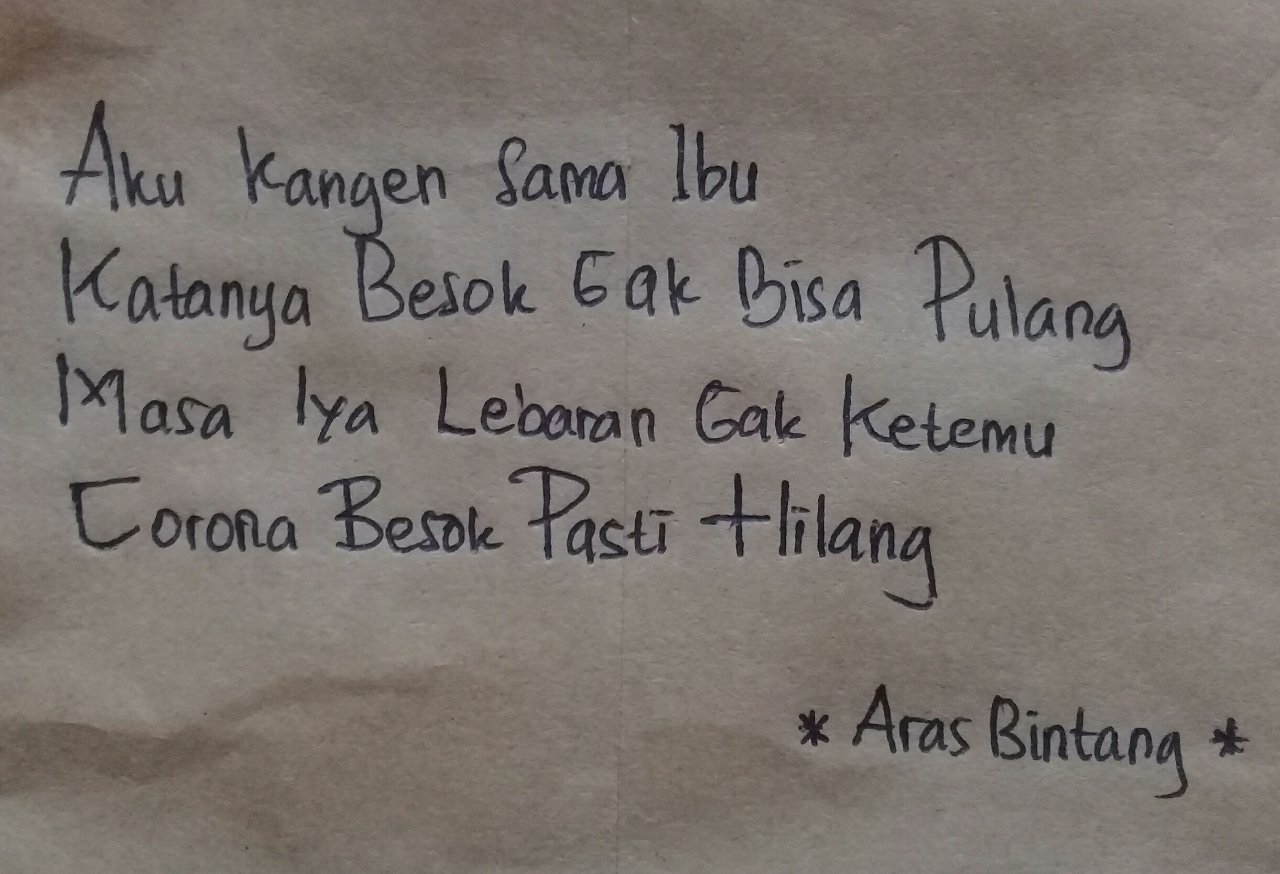 Aku Kangen Sama Ibu
Katanya Besok Gak Bisa Pulang
Masa Iya Lebaran Gak Ketemu
Corona Besok Pasti Hilang
* Aras Bintang *